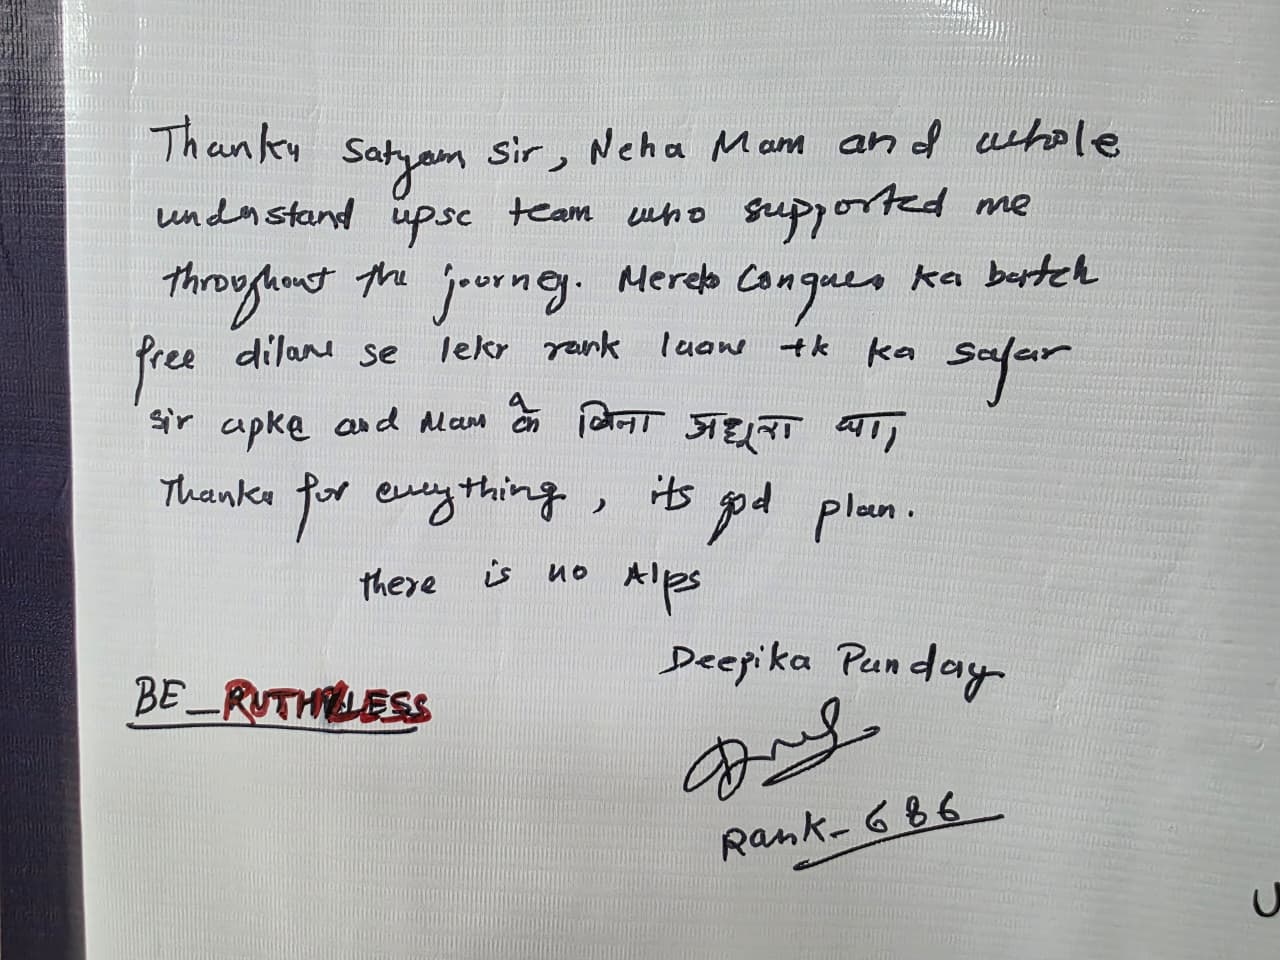 Thanks Satyam Sir, Neha Mam and whole
understand upsc team who supported me
throughout the journey. Mereko Conquer ka batch
free dilane se lekr rank laane tk ka safar
Sir apke and Mam के बिना अधूरा था,
Thanks for everything, its god plan.
there is no Alps
Deepika Panday
BE_RUTHLESS
Rank-686
U